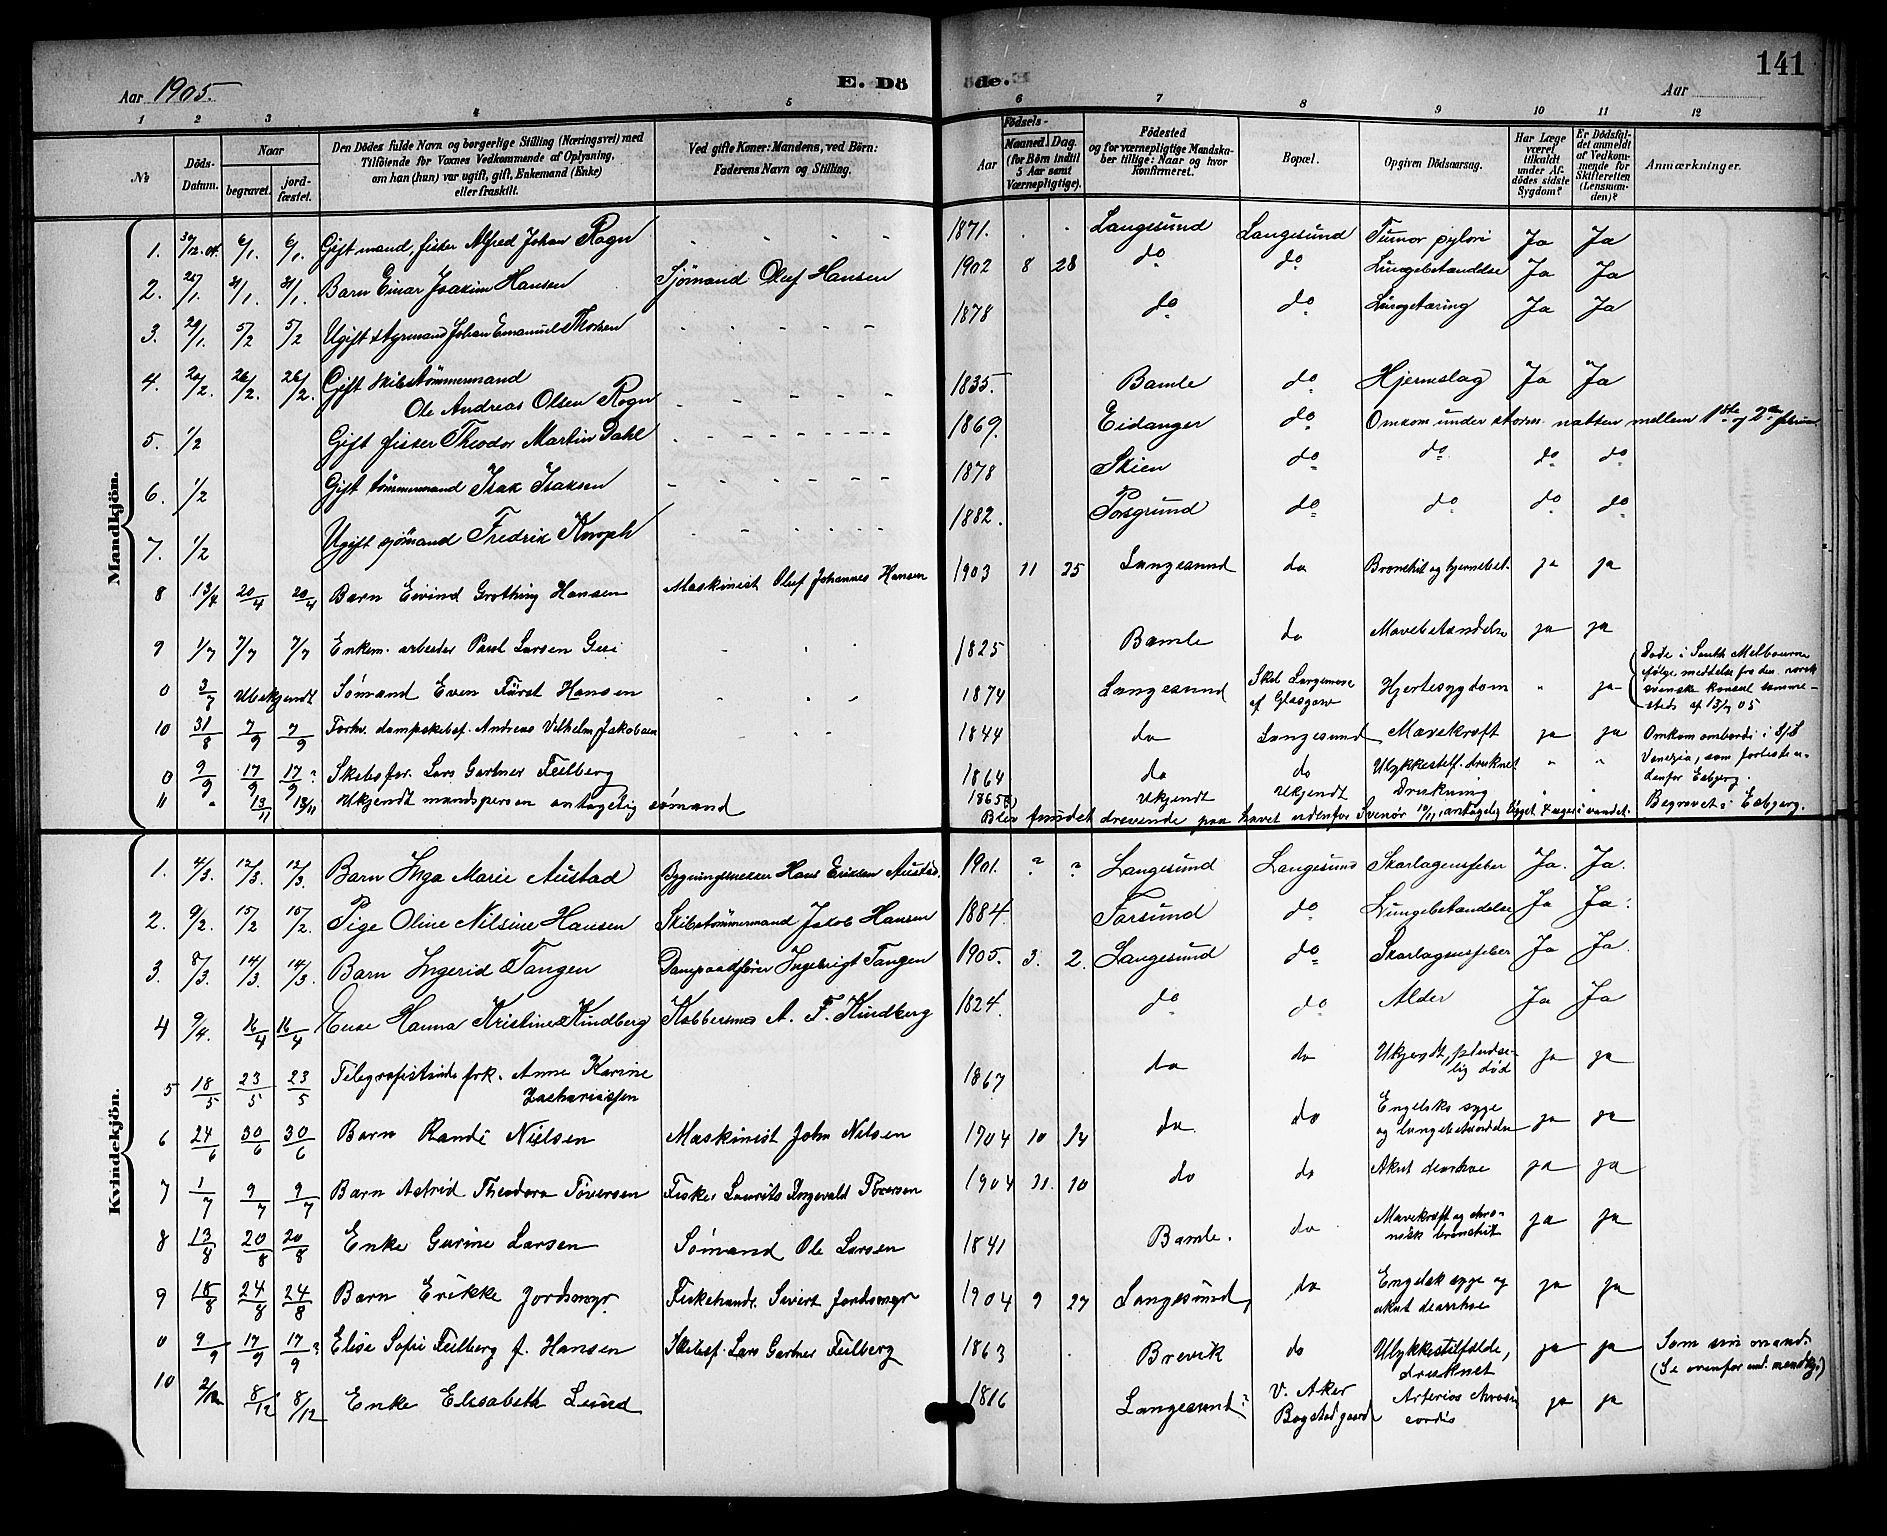 141
Aar 1905.
E. Dö de.
Aar
1 2 3 4 5 6 7 8 9 10 11 12
No
Döds-Datum.
Naar
begravet.
jord-fæstet.
Den Dödes fulde Navn og borgerlige Stilling (Næringsvei) med
Tilföiende for Voxnes Vedkommende af Oplysning,
om han (hun) var ugift, gift, Enkemand (Enke)
eller fraskilt.
Ved gifte Koner: Mandens, ved Börn:
Faderens Navn og Stilling.
Födsels-
Aar
Maaned. Dag.
(for Börn indtil
5 Aar samt
Værnepligtige).
Födested
og for værnepligtige Mandska-
ber tillige: Naar og hvor
konfirmeret.
Bopæl.
Opgiven Dödsaarsag.
Har Læge
været
tilkaldt
under Af-
dödes sidste
Sygdom?
Er Dödsfal-
det anmeldt
af Vedkom-
mende for
Skifteretten
(Lensman-
den)?
Anmærkninger.
Mandkjön.
1. 30/12.04. 6/1. 6/1. Gift mand, fisker Alfred Johan Rogn 1871. Langesund Langesund Tumor pylori Ja Ja
2. 25/1. 31/1. 31/1. Barn Einar Joakim Hansen Sjömand Oluf Hansen 1902 8 28 do do Lungebetændelse Ja Ja
3. 29/1. 5/2 5/2 Ugift styrmand Johan Emanuel Thorsen 1878 do do Lungetæring Ja Ja
4. 20/2. 26/2. 26/2. Gift skibstömmermand
Ole Andreas Olsen Rogn 1835. Bamle do Hjerneslag Ja Ja
5. 1/2 Gift fisker Theodor Martin Dahl 1869. Eidanger do Omkom under storm natten mellem 1ste og 2den februar
6. 1/2 Gift tömmermand Isak Isaksen 1878 Skien do do do do
7. 1/2 Ugift sjömand Fredrik Knoph 1882. Porsgrund do do do do
8 13/4 20/4 20/4 Barn Eivind Grothing Hansen Maskinist Oluf Johannes Hansen 1903 11 25 Langesund do Bronchit og hjernebet. ja ja
9 1/7 7/7 7/7 Enkem. arbeider Paul Larsen 1825 Bamle do Mavebetændelse ja ja
0 3/7 Ubekjendt Sømand Even Fürst Hansen 1874 Langesund Skib Largemore
af Glasgow Hjertesygdom " ja Døde i South Melbourne
ifølge meddelse fra den norsk
svenske konsul samme-
steds af 13/7 05
10 31/8 7/9 7/9 Forhv. dampskibsf. Andreas Vilhelm Jakobsen 1844 do Langesund Mavekræft ja ja
0 9/9 17/9 17/9? Skibsfør. Lars Gartner Feilberg 1864 do do Ulykkestilf. druknet " " Omkom ombord i S/S
Venezia, som forliste u-
denfor Esbjerg.
Begravet i Esbjerg.
11 " 13/11 13/11 Ukjendt mandsperson antagelig sømand 1865(?) Ukjendt Ukjendt Drukning " "
Blev fundet drevende paa havet udenfor Svenør 10/11, antagelig ligget i vandet.
Kvindekjön.
1. 4/3. 12/3. 12/3. Barn Inga Marie Austad Bygningssnekker Hans Eriksen Austad. 1901. ? ? Langesund Langesund Skarlagensfeber Ja. Ja.
2. 9/2. 15/2 15/2. Pige Oline Nilsine Hansen Skibstömmermand Jakob Hansen 1884. Farsund do Lungebetændelse Ja Ja.
3. 8/3. 14/3. 14/3. Barn Ingerid Tangen Ingebrigt Tangen 1905. 3. 2. Langesund do Skarlagensfeber Ja Ja.
4 9/4. 16/4 16/4 Enke Hanna Kristine Kindberg Kobbersmed A. F. Kindberg 1824. do do Alder Ja Ja
5 18/5 23/5 23/5 Telegrafistinde frk. Anne Karine
Zachariassen 1867 do do Ukjendt, pludse-
lig død ja ja
6 24/6 30/6 30/6 Barn Randi Nielsen Maskinist John Nilsen 1904 10 14 do do Engelsk syge
og lungebetændelse ja ja
7 1/7 9/7 9/7 Barn Astrid Theodora Töversen Fisker Laurits Ingevald Töversen 1904 11. 10 do do Akut diarrhoe ja ja
8 13/8 20/8 20/8 Enke Gurine Larsen Sømand Ole Larsen 1841 Bamle. do Mavekræft og chro-
nisk bronchit ja ja
9 18/8 24/8 24/8 Barn Erikke Jordsmyr Fiskehandl. Sivert Jordsmyr 1904 9 27 Langesund, do Engelsk syge og
akut diarrhoe ja ja
0 9/9 17/9 17/9? Elise Sofie Feilberg f. Hansen Skibsf. Lars Gartner Feilberg 1863 Brevik do Ulykkestilfælde,
druknet ja ja Som sin mand.
(Se ovenfor und. mandkj.)
10 2/12 8/12 8/12 Enke Elisabeth Lund 1816 Langesund? V. Aker
Bogstad gaard cordis ja ja